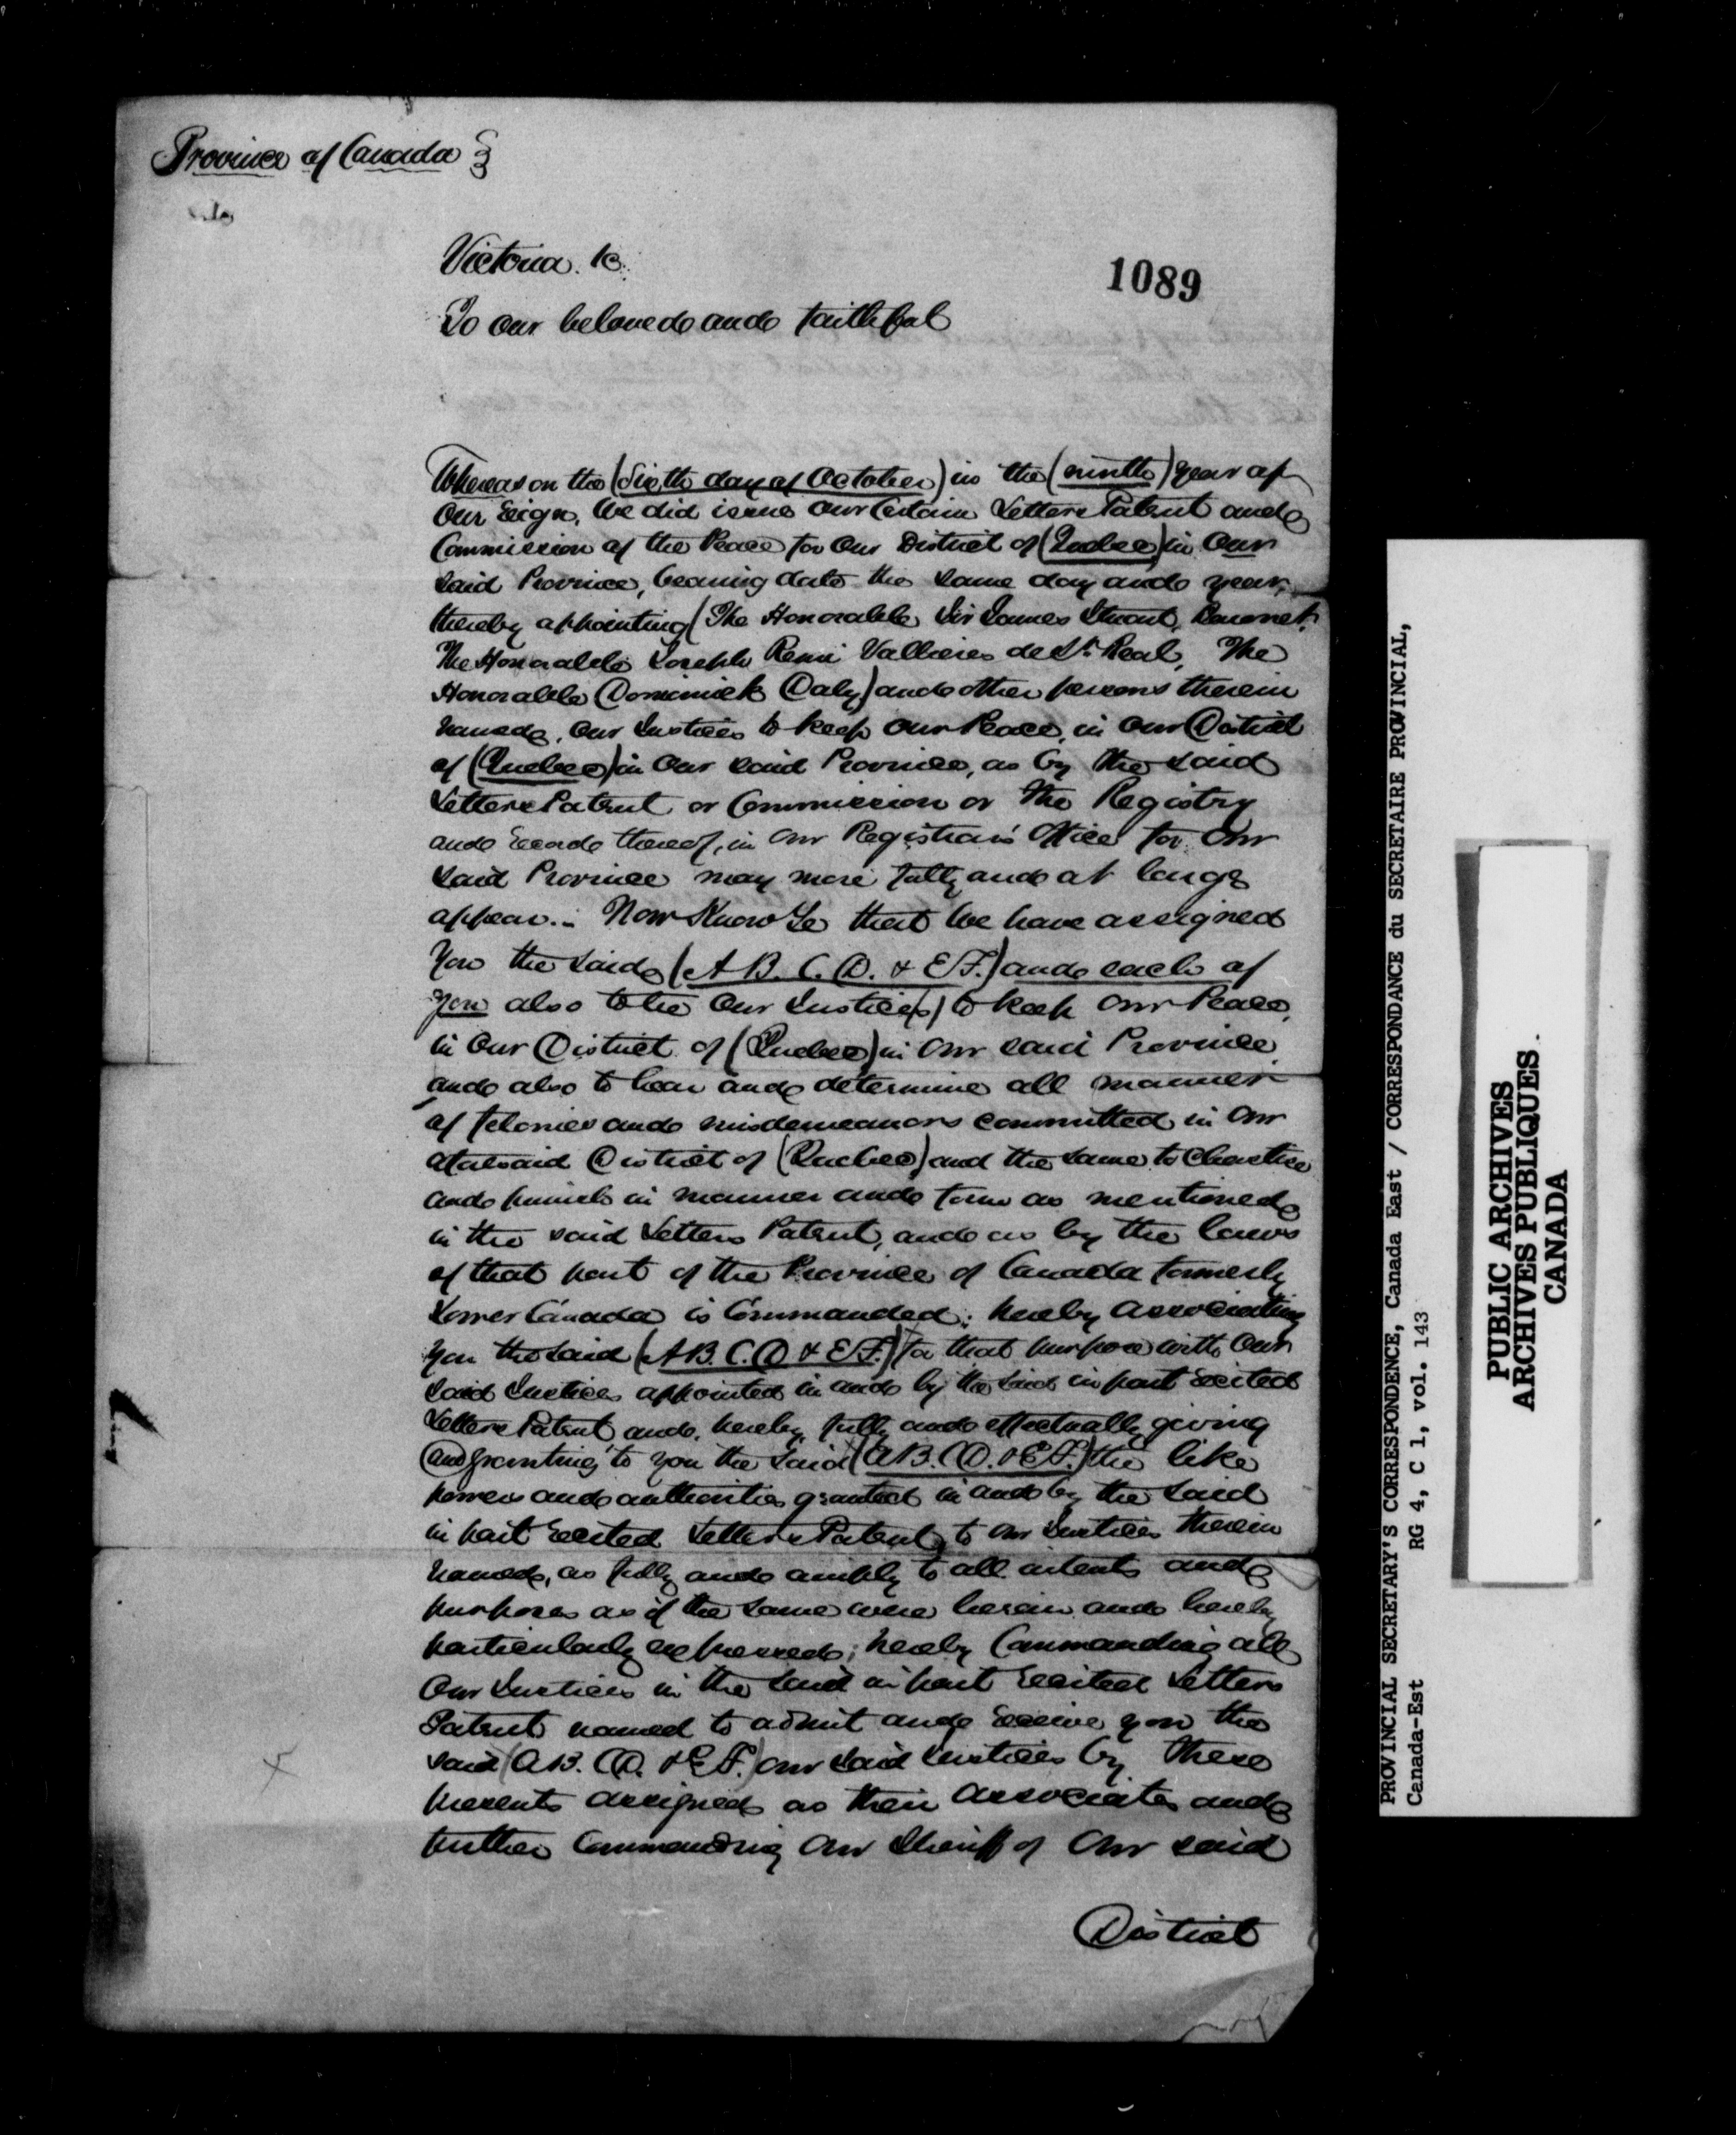 Province of Canada
Victoria. &c.
1089
To our beloved and faithful
Whereas on the (Sixth day of October) in the (ninth) year of
Our Reign, We did issue our Certain Letters Patent and
Commission of the Peace for Our District of (Quebec) in Our
said Province, bearing date the same day and year,
thereby appointing (The Honorable Sir James Stuart, Baronet,
The Honorable Joseph Remi Vallieres de St. Real, The
Honorable Dominick Daly) and other persons therein
named, Our Justices to keep Our Peace, in Our District
of (Quebec) in Our said Province, as by the said
Letters Patent or Commission or the Registry
and Record thereof, in Our Registrar's Office for Our
said Province may more fully and at large
appear.- Now Know Ye that We have assigned
You the said (A B. C. D. & E F.) and each of
you also to be Our Justice(s) to keep Our Peace,
in Our District of (Quebec) in Our said Province,
and also to hear and determine all manner
of felonies and misdemeanors committed in Our
aforesaid District of (Quebec) and the same to Chastise
and punish in manner and form as mentioned
in the said Letters Patent, and as by the laws
of that part of the Province of Canada formerly
Lower Canada is Commanded: hereby associating
you the said (A B. C. D & E F.) for that purpose with Our
said Justices appointed in and by the said in part recited
Letters Patent and, hereby, fully and effectually giving
and granting to you the said (A B. C D. & E F.) the like
powers and authorities granted in and by the said
in part recited Letters Patent, to Our Justices therein
named, as fully and amply to all intents and
purposes as if the same were herein and hereby
particularly expressed; hereby Commanding all
Our Justices in the said in part recited Letters
Patent named to admit and receive you the
said (A B. C D. & E F.) Our said Justices by these
presents assigned as their associates and
further Commanding Our Sheriff of Our said
District
PROVINCIAL SECRETARY'S CORRESPONDENCE, Canada East / CORRESPONDANCE du SECRETAIRE PROVINCIAL,
Canada-Est RG 4, C 1, vol. 143
PUBLIC ARCHIVES
ARCHIVES PUBLIQUES
CANADA